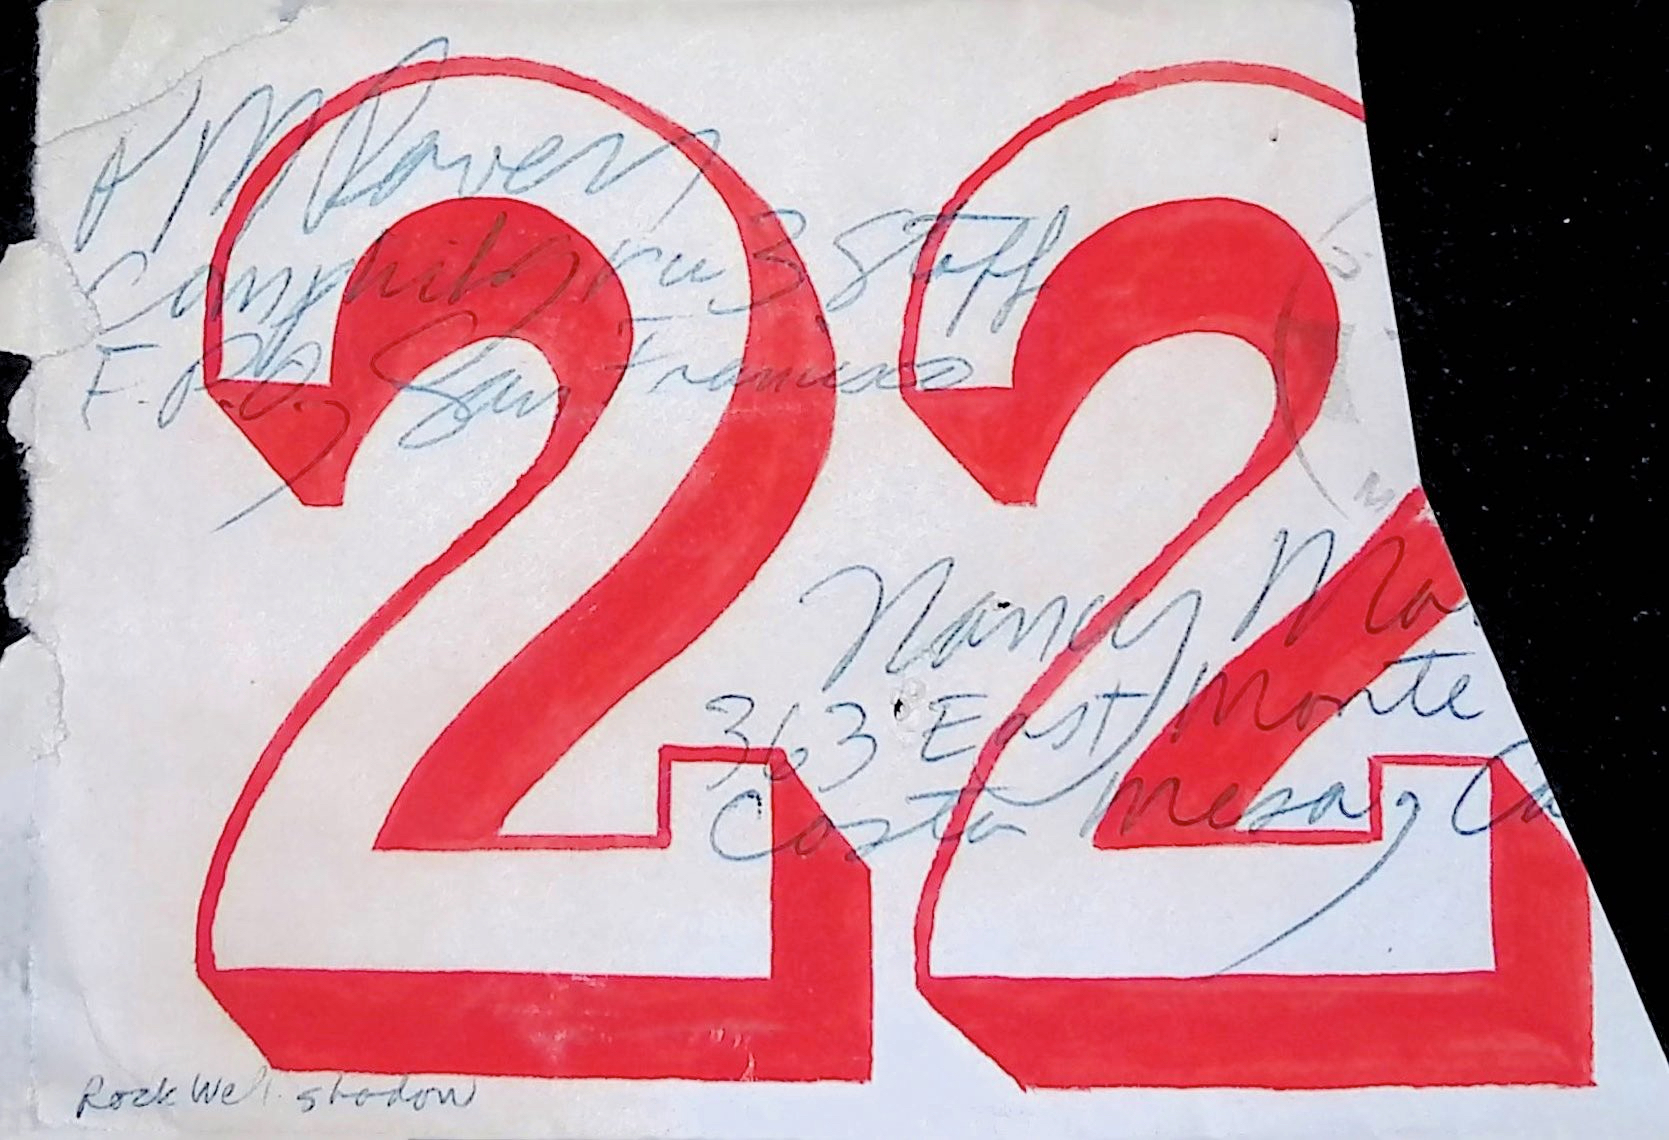 22
PM Raven
Comphibgru 3 Staff
F.P.O., San Francisco
Nancy Ma
363 East Monte
Costa Mesa, Ca
Rockwell shadow